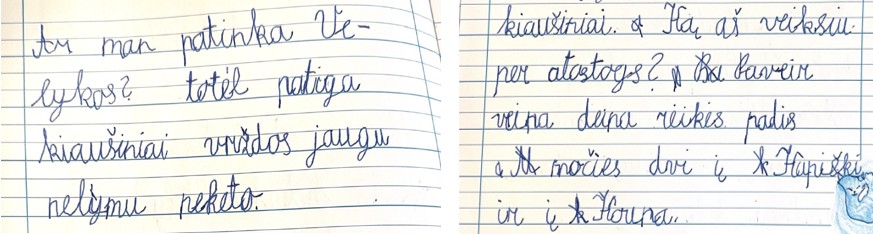 Ar man patinka Ve-
lykos? totėl patiga
kiaušiniai vrždos jaugu
nelymu neketo.
kiaušiniai. Ką aš veiksiu
per atostogs? Paveir
veina deina reikės padis
močies dvi į Kapiški
ir į Kouna.